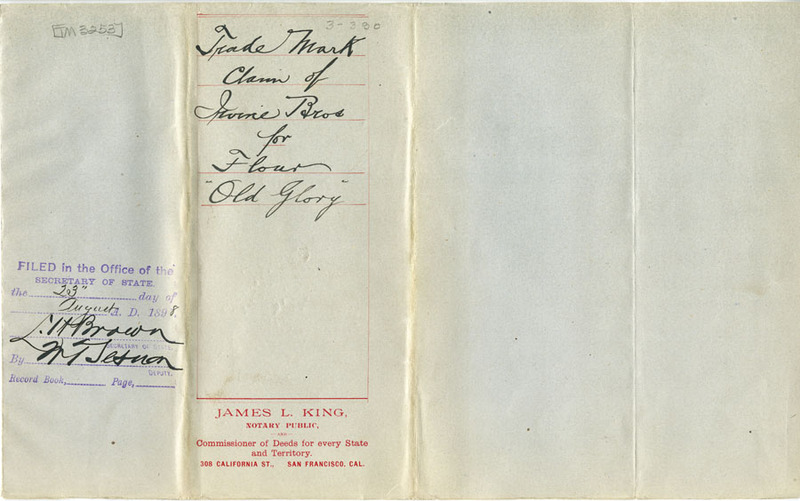 TM 3253
3-380
Trade Mark
Claim of
Irvine Bros
for
Flour
"Old Glory"
FILED in the Office of the
SECRETARY OF STATE.
the 23" day of
August A. D. 1898.
L. H. Brown
SECRETARY OF STATE
By
DEPUTY.
Record Book, Page,
JAMES L. KING,
NOTARY PUBLIC,
AND
Commissioner of Deeds for every State
and Territory.
308 CALIFORNIA ST., SAN FRANCISCO, CAL.